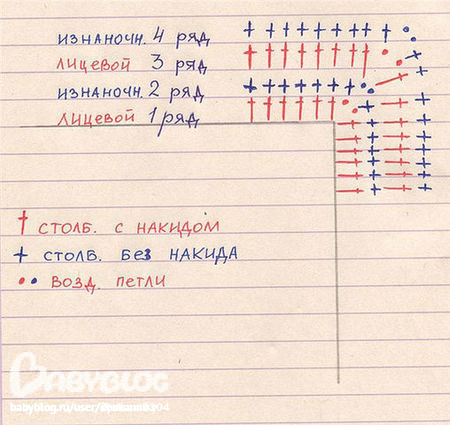 ИЗНАНОЧН. 4 РЯД
ЛИЦЕВОЙ 3 РЯД
ИЗНАНОЧН. 2 РЯД
ЛИЦЕВОЙ 1 РЯД
СТОЛБ. С НАКИДОМ
СТОЛБ. БЕЗ НАКИДА
ВОЗД. ПЕТЛИ
BABYBLOG